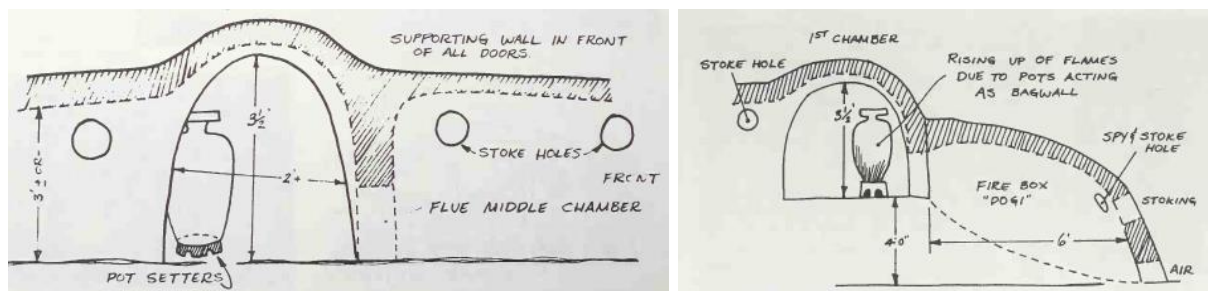 SUPPORTING WALL IN FRONT
OF ALL DOORS.
3½'
3'+ OR -
2'+
STOKE HOLES
FRONT
FLUE MIDDLE CHAMBER
POT SETTERS
1ST CHAMBER
STOKE HOLE
RISING UP OF FLAMES
DUE TO POTS ACTING
AS BAGWALL
3½'
SPY & STOKE
HOLE
FIRE BOX
"DOGI"
STOKING
4'0"
6'
AIR